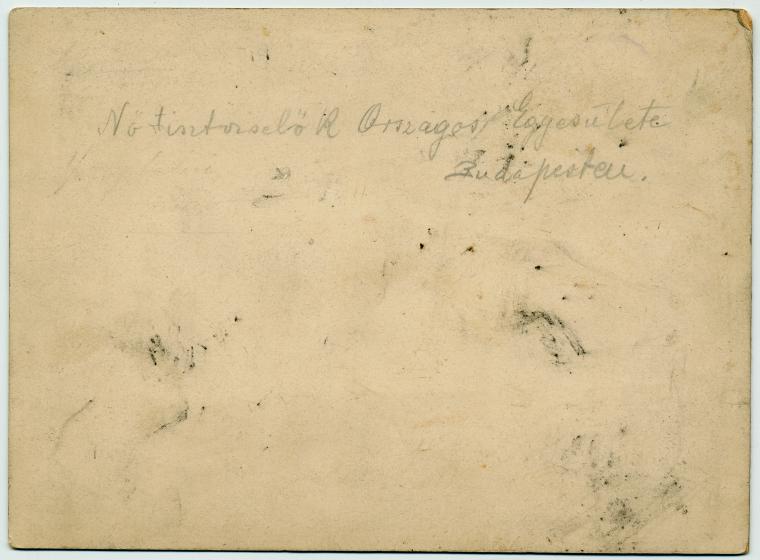 Nő tisztviselők Országos Egyesülete
Budapesten.